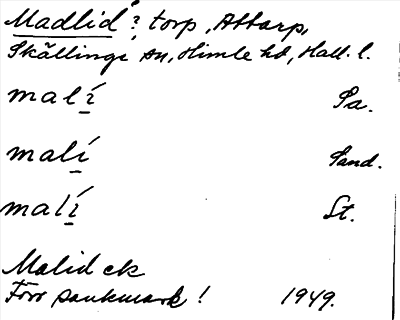 Madlid? torp, Attarp,
Skällinge sn, Himle hd, Hall. l.
malí Sa.
malí Sand.
malí St.
Malid ek
Förr sankmark! 1949.